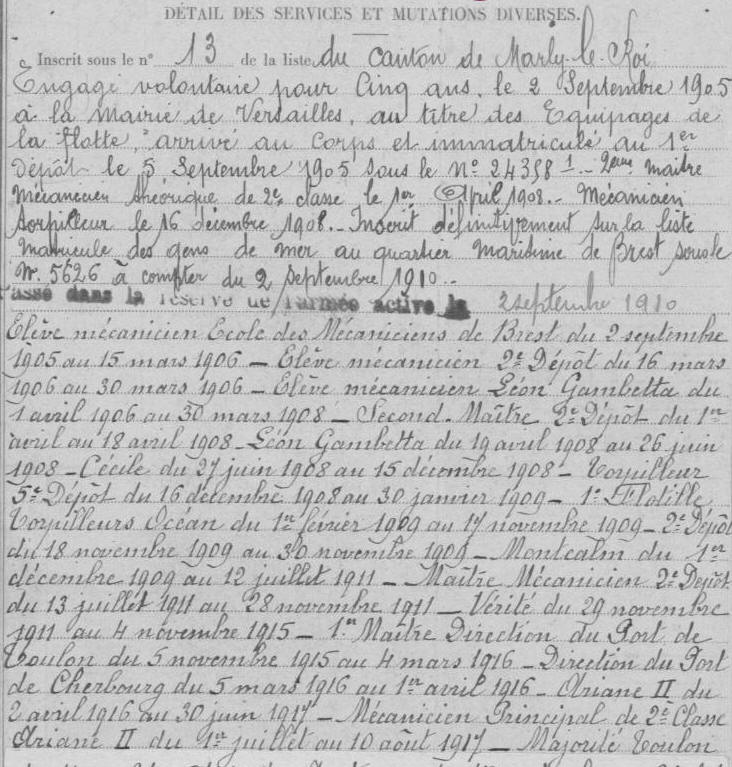 DÉTAIL DES SERVICES ET MUTATIONS DIVERSES.
Inscrit sous le n° 13 de la liste du canton de Marly-le-Roi
Engagé volontaire pour Cinq ans, le 2 Septembre 1905
à la Mairie de Versailles, au titre des Equipages de
la flotte, arrivé au Corps et immatriculé au 1er
Dépôt le 5 Septembre 1905 sous le N° 24358-1 - 2eme maître
mécanicien théorique de 2e classe le 1er April 1908.- Mécanicien
torpilleur le 16 décembre 1908.- Inscrit définitivement sur la liste
matricule des gens de mer au quartier maritime de Brest sous le
N° 5626 à compter du 2 Septembre 1910.-
Passé dans la réserve de l'armée active le 2 septembre 1910
Elève mécanicien Ecole des Mécaniciens de Brest du 2 septembre
1905 au 15 mars 1906 - Elève mécanicien 2e Dépôt du 16 mars
1906 au 30 mars 1906 - Elève mécanicien Léon Gambetta du
1 avril 1906 au 30 mars 1908 - Second-Maître 2e Dépôt du 1er
avril au 18 avril 1908 - Léon Gambetta du 19 avril 1908 au 26 juin
1908 - Cécile du 27 juin 1908 au 15 décembre 1908 - Torpilleur
5e Dépôt du 16 décembre 1908 au 30 janvier 1909 - 1e Flotille
Torpilleurs Océan du 1er février 1909 au 17 novembre 1909 - 2e Dépôt
du 18 novembre 1909 au 30 novembre 1909 - Montcalm du 1er
décembre 1909 au 12 juillet 1911 - Maître Mécanicien 2e Dépôt
du 13 juillet 1911 au 28 novembre 1911 - Vérité du 29 novembre
1911 au 4 novembre 1915 - 1er Maître Direction du Port de
Toulon du 5 novembre 1915 au 4 mars 1916 - Direction du Port
de Cherbourg du 5 mars 1916 au 1er avril 1916 - Ariane II du
2 avril 1916 au 30 juin 1917 - Mécanicien Principal de 2e Classe
Ariane II du 1er juillet au 10 août 1917 - Majorité Toulon